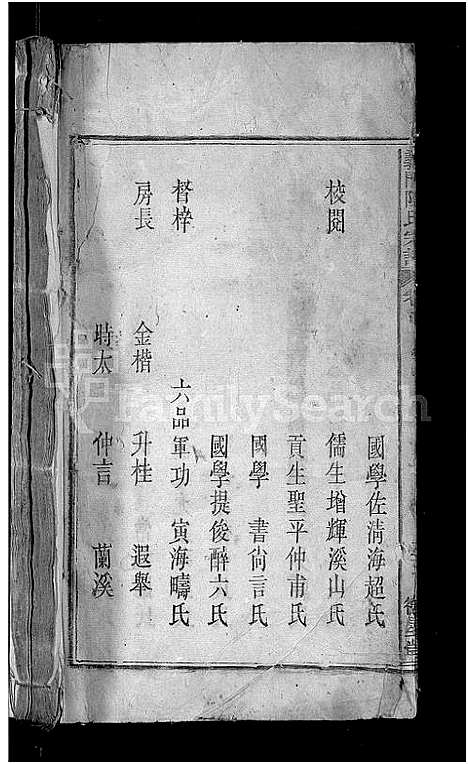 義門陳氏宗譜
國學佐淸海超氏
校閱 儒生增輝溪山氏
貢生聖平仲甫氏
國學書尙言氏
國學提俊醉六氏
督梓 六品軍功寅海疇氏
房長 金楷 升桂 遐舉
時太 仲言 蘭溪
FamilySearch